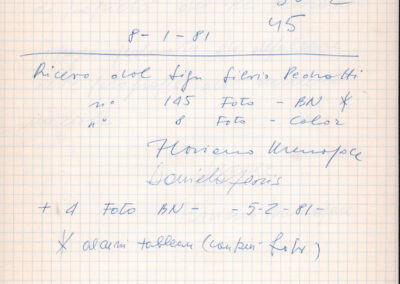 45
8-1-81
Ricevo dal Sign Silvio Pedrotti
n° 145 Foto - BN *
n° 8 Foto - Color
Floriano Menapace
Daniela Floris
+ 4 Foto BN - - 5-2-81-
* alcuni tableau